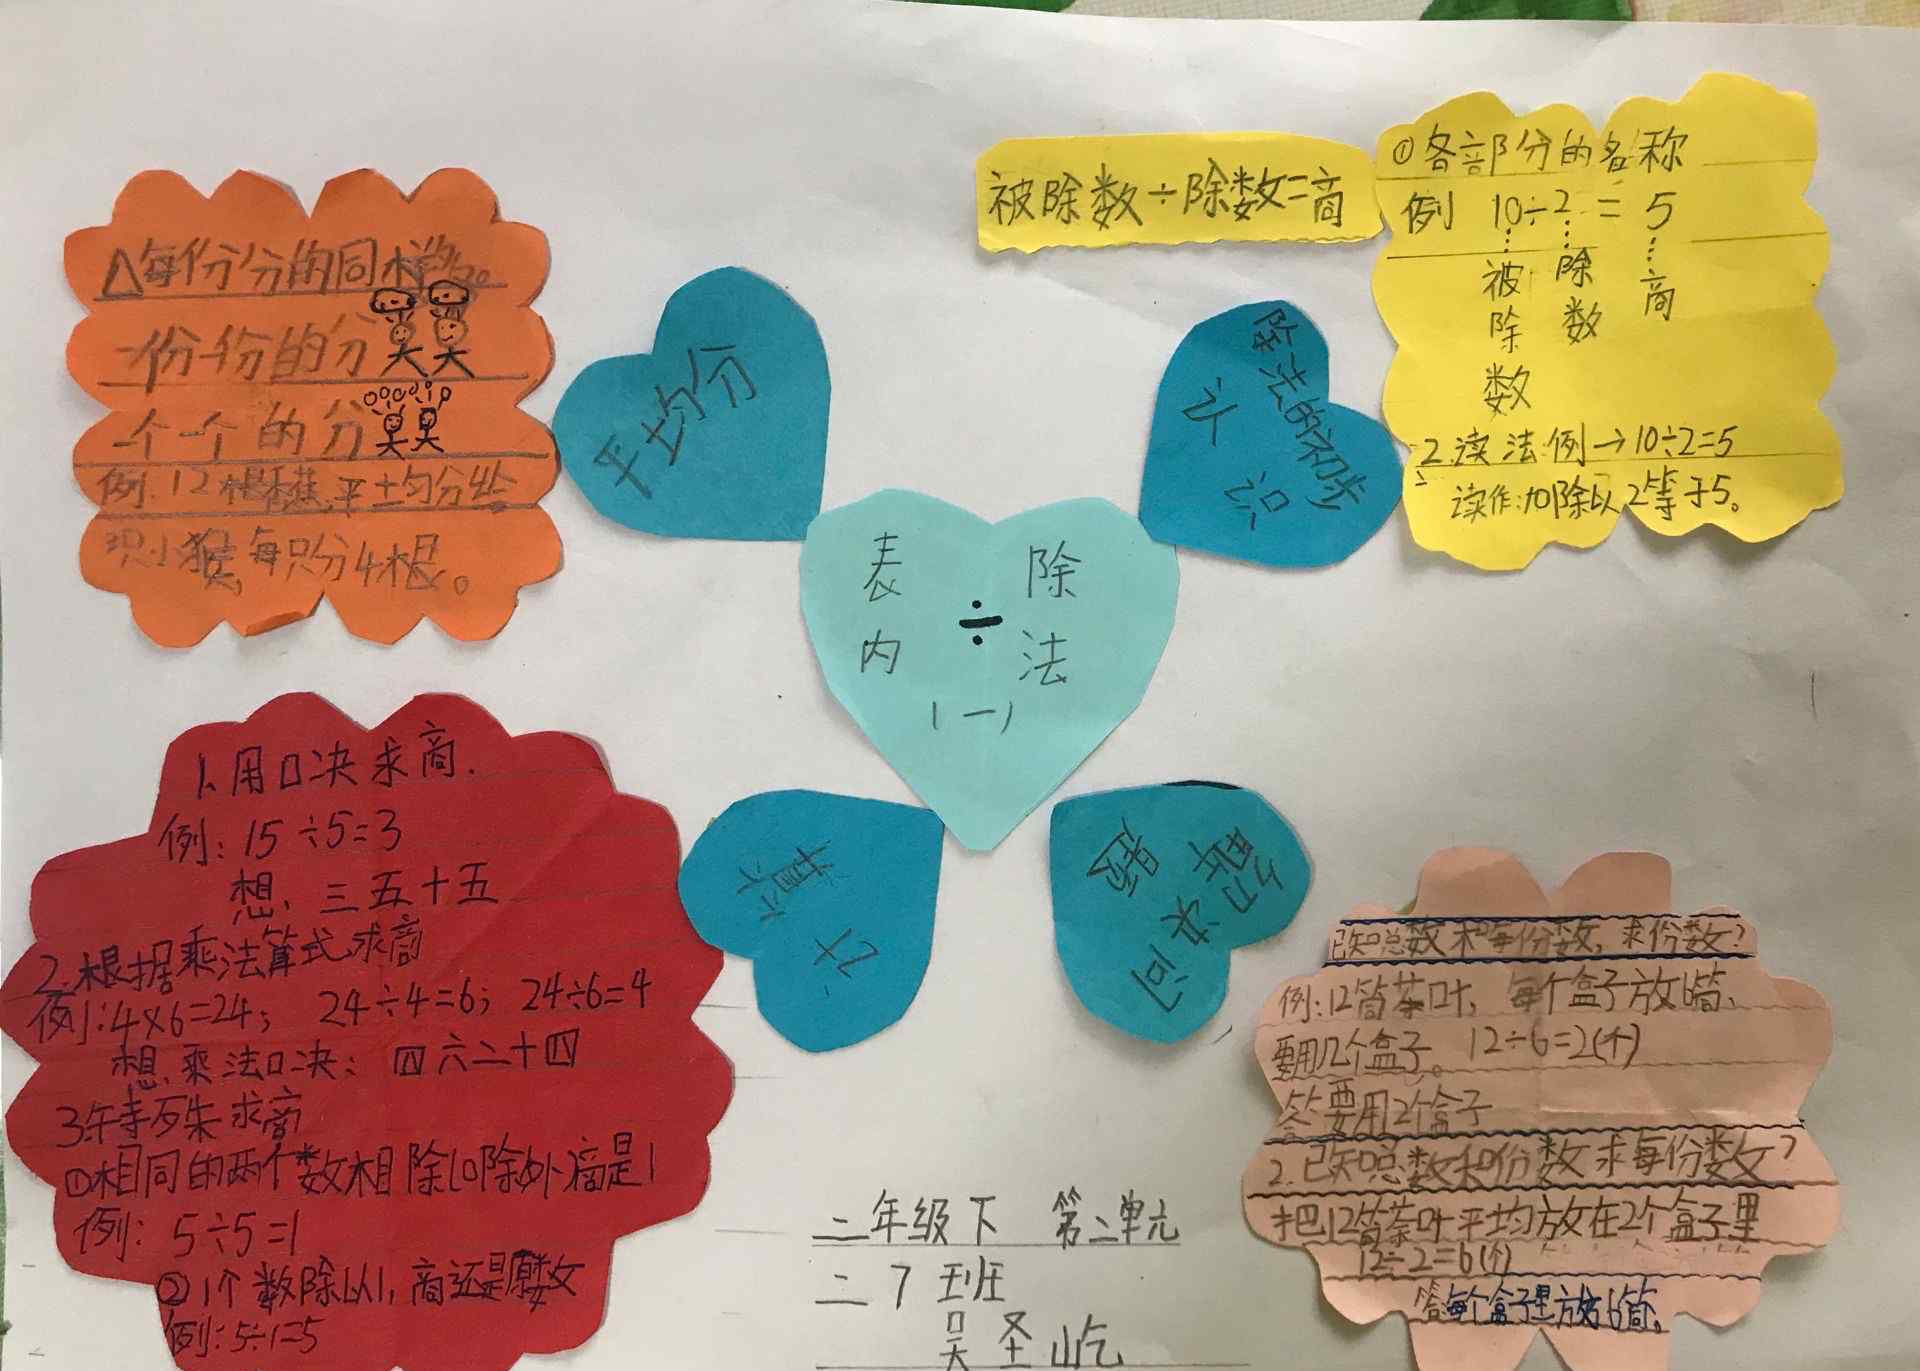 表 除
÷
内 法
(一)
平均分
△每份分的同样多。
一份一份的分
一个一个的分
例:12根香蕉,平均分给
3只小猴,每只分4根。
除法的初步
认识
被除数÷除数=商
①各部分的名称
例 10÷2=5
被除数
除数
商
2.读法:例→10÷2=5
读作:10除以2等于5。
计算
1.用口决求商.
例:15÷5=3
想、三五十五
2.根据乘法算式求商
例:4×6=24; 24÷4=6; 24÷6=4
想、乘法口决:四六二十四
3.特殊求商
①相同的两个数相除(0除外)商是1
例:5÷5=1
②1个数除以1,商还是原数
例:5÷1=5
解决问
题
已知总数和每份数,求份数?
例:12筒茶叶,每个盒子放6筒、
要用几个盒子。12÷6=2(个)
答要用2个盒子
2.已知总数和份数求每份数?
把12筒茶叶平均放在2个盒子里
12÷2=6(个)
答每个盒子里放6筒。
二年级下 第二单元
二7班
吴圣屹